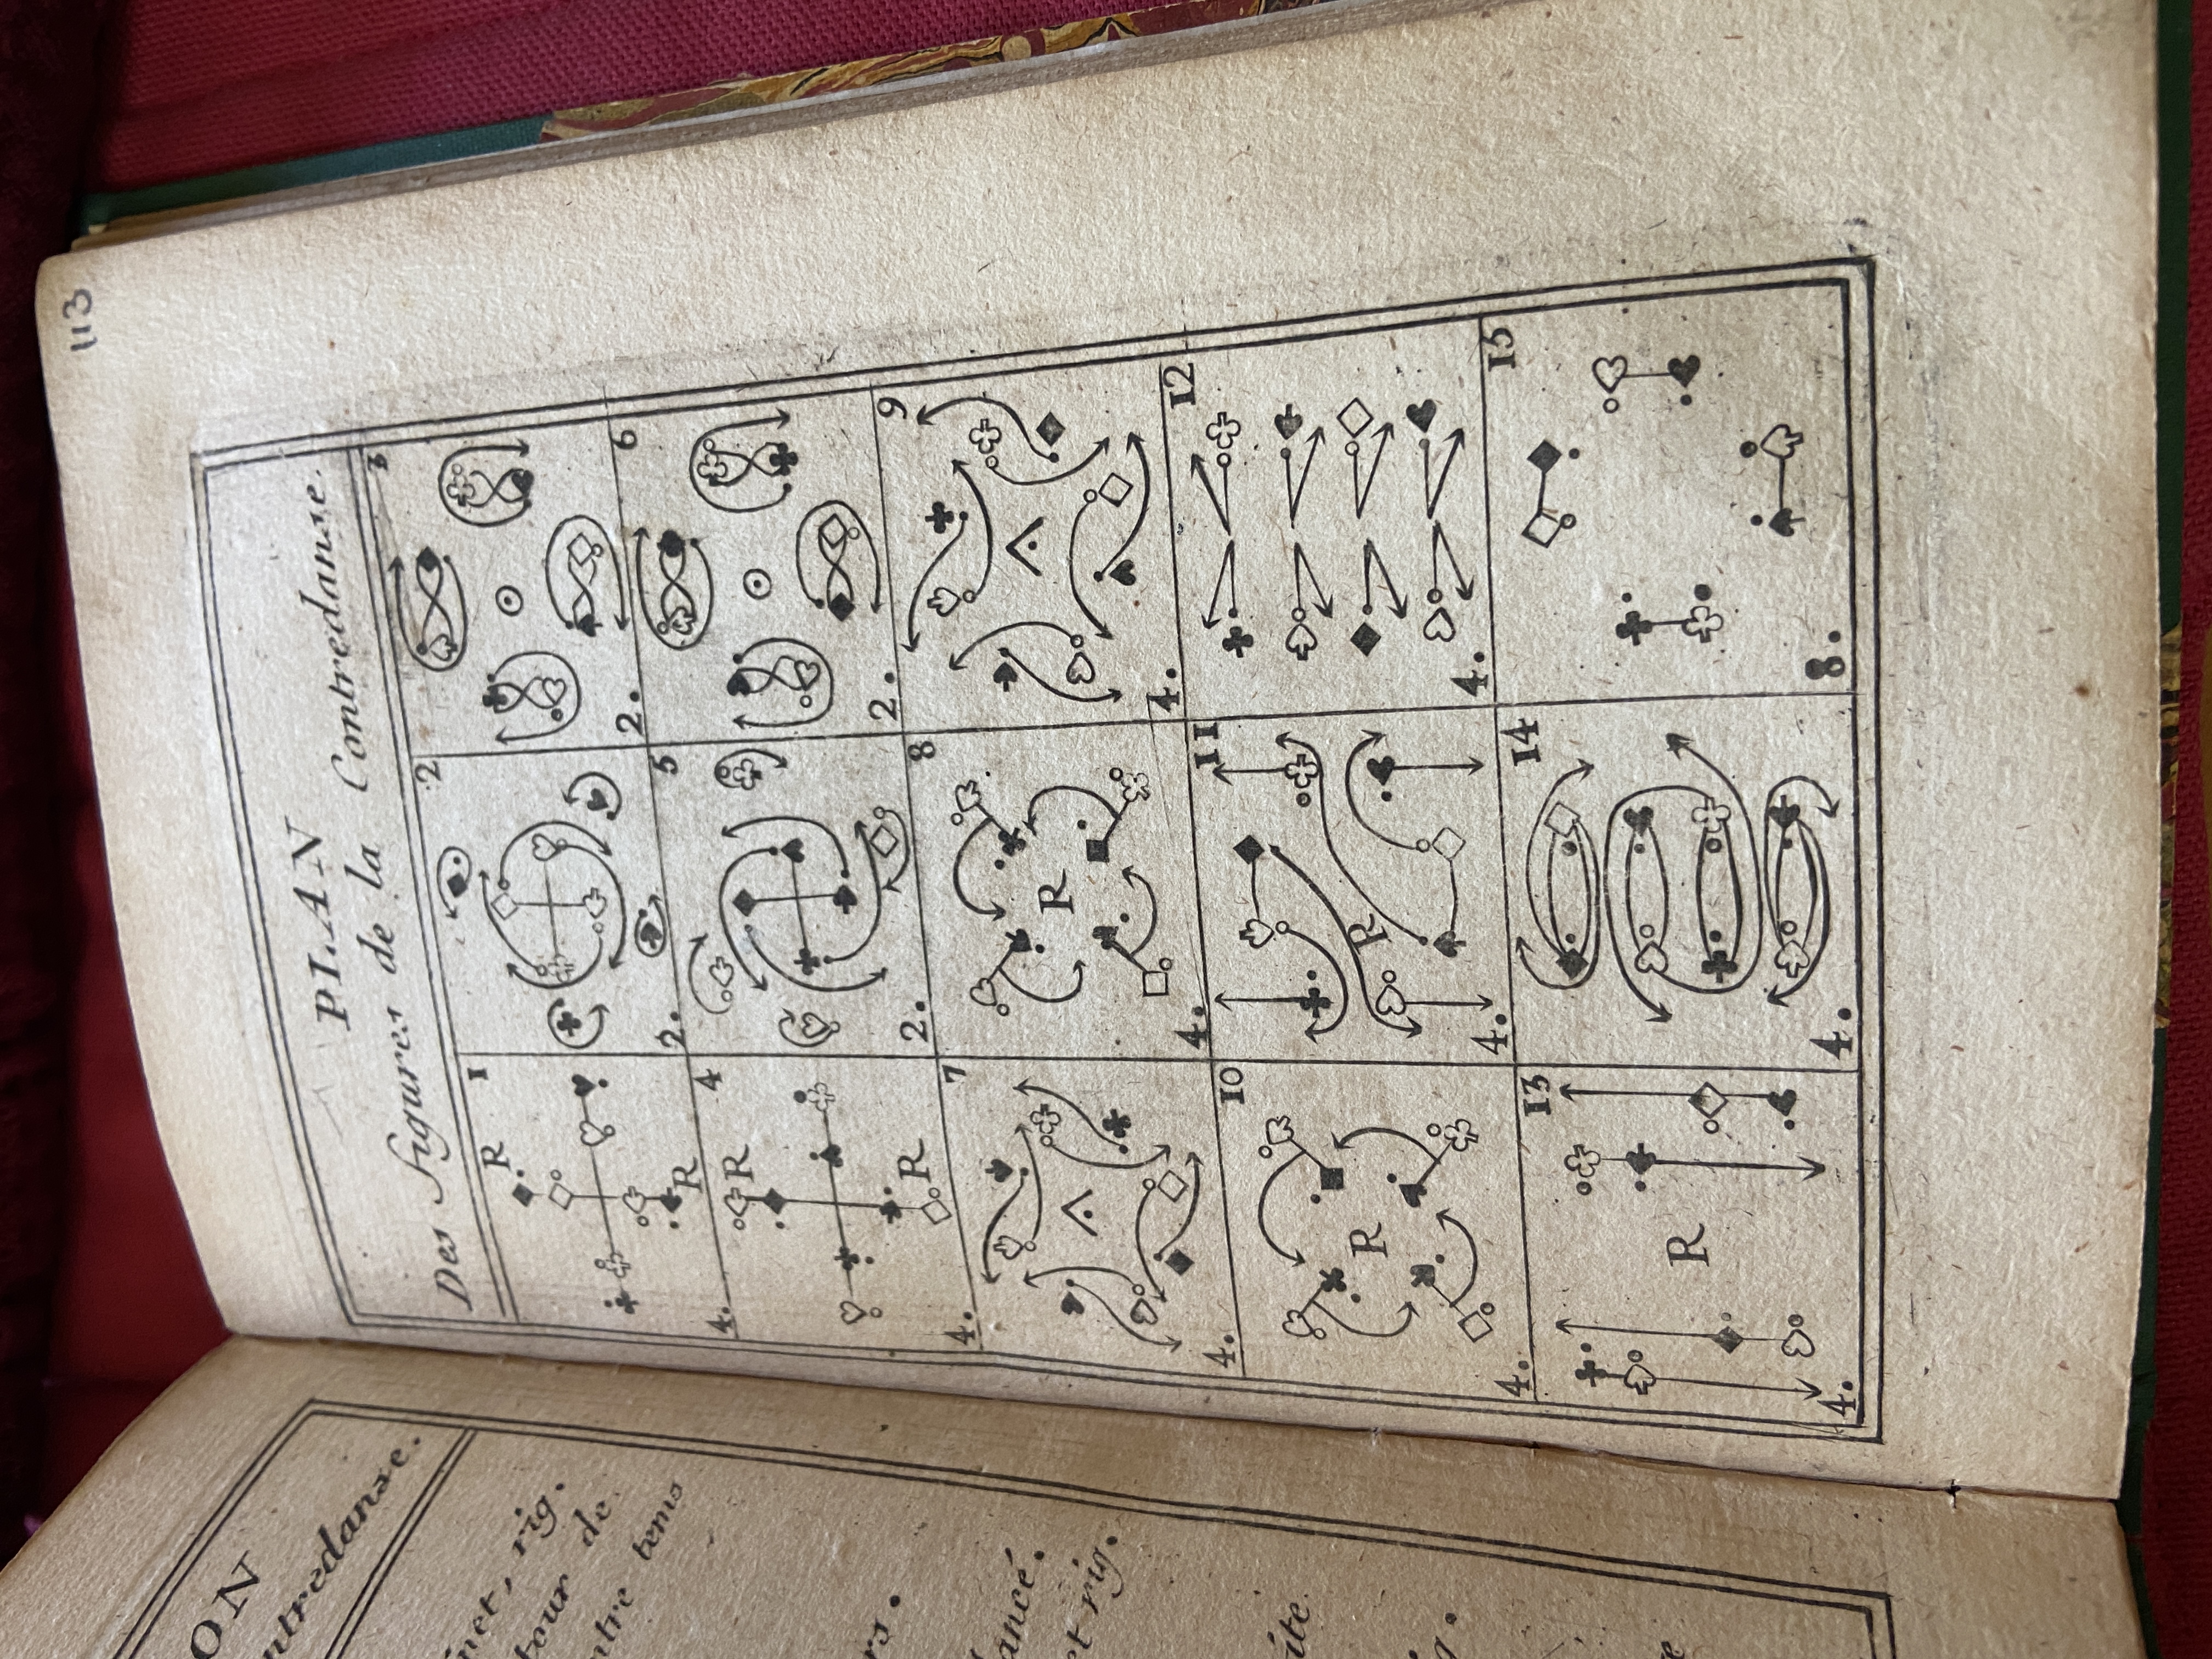 113
PLAN
Des Figures de la Contredanse.
1
R
R
4.
2
2.
3
2.
4
R
R
4.
5
2.
6
2.
7
4.
8
R
4.
9
4.
10
R
4.
11
R
4.
12
4.
13
R
4.
14
4.
15
8.
ON
ntredanse.
inet, rig.
tour de
ntre tems
rs.
lancé.
et rig.
ite
g.